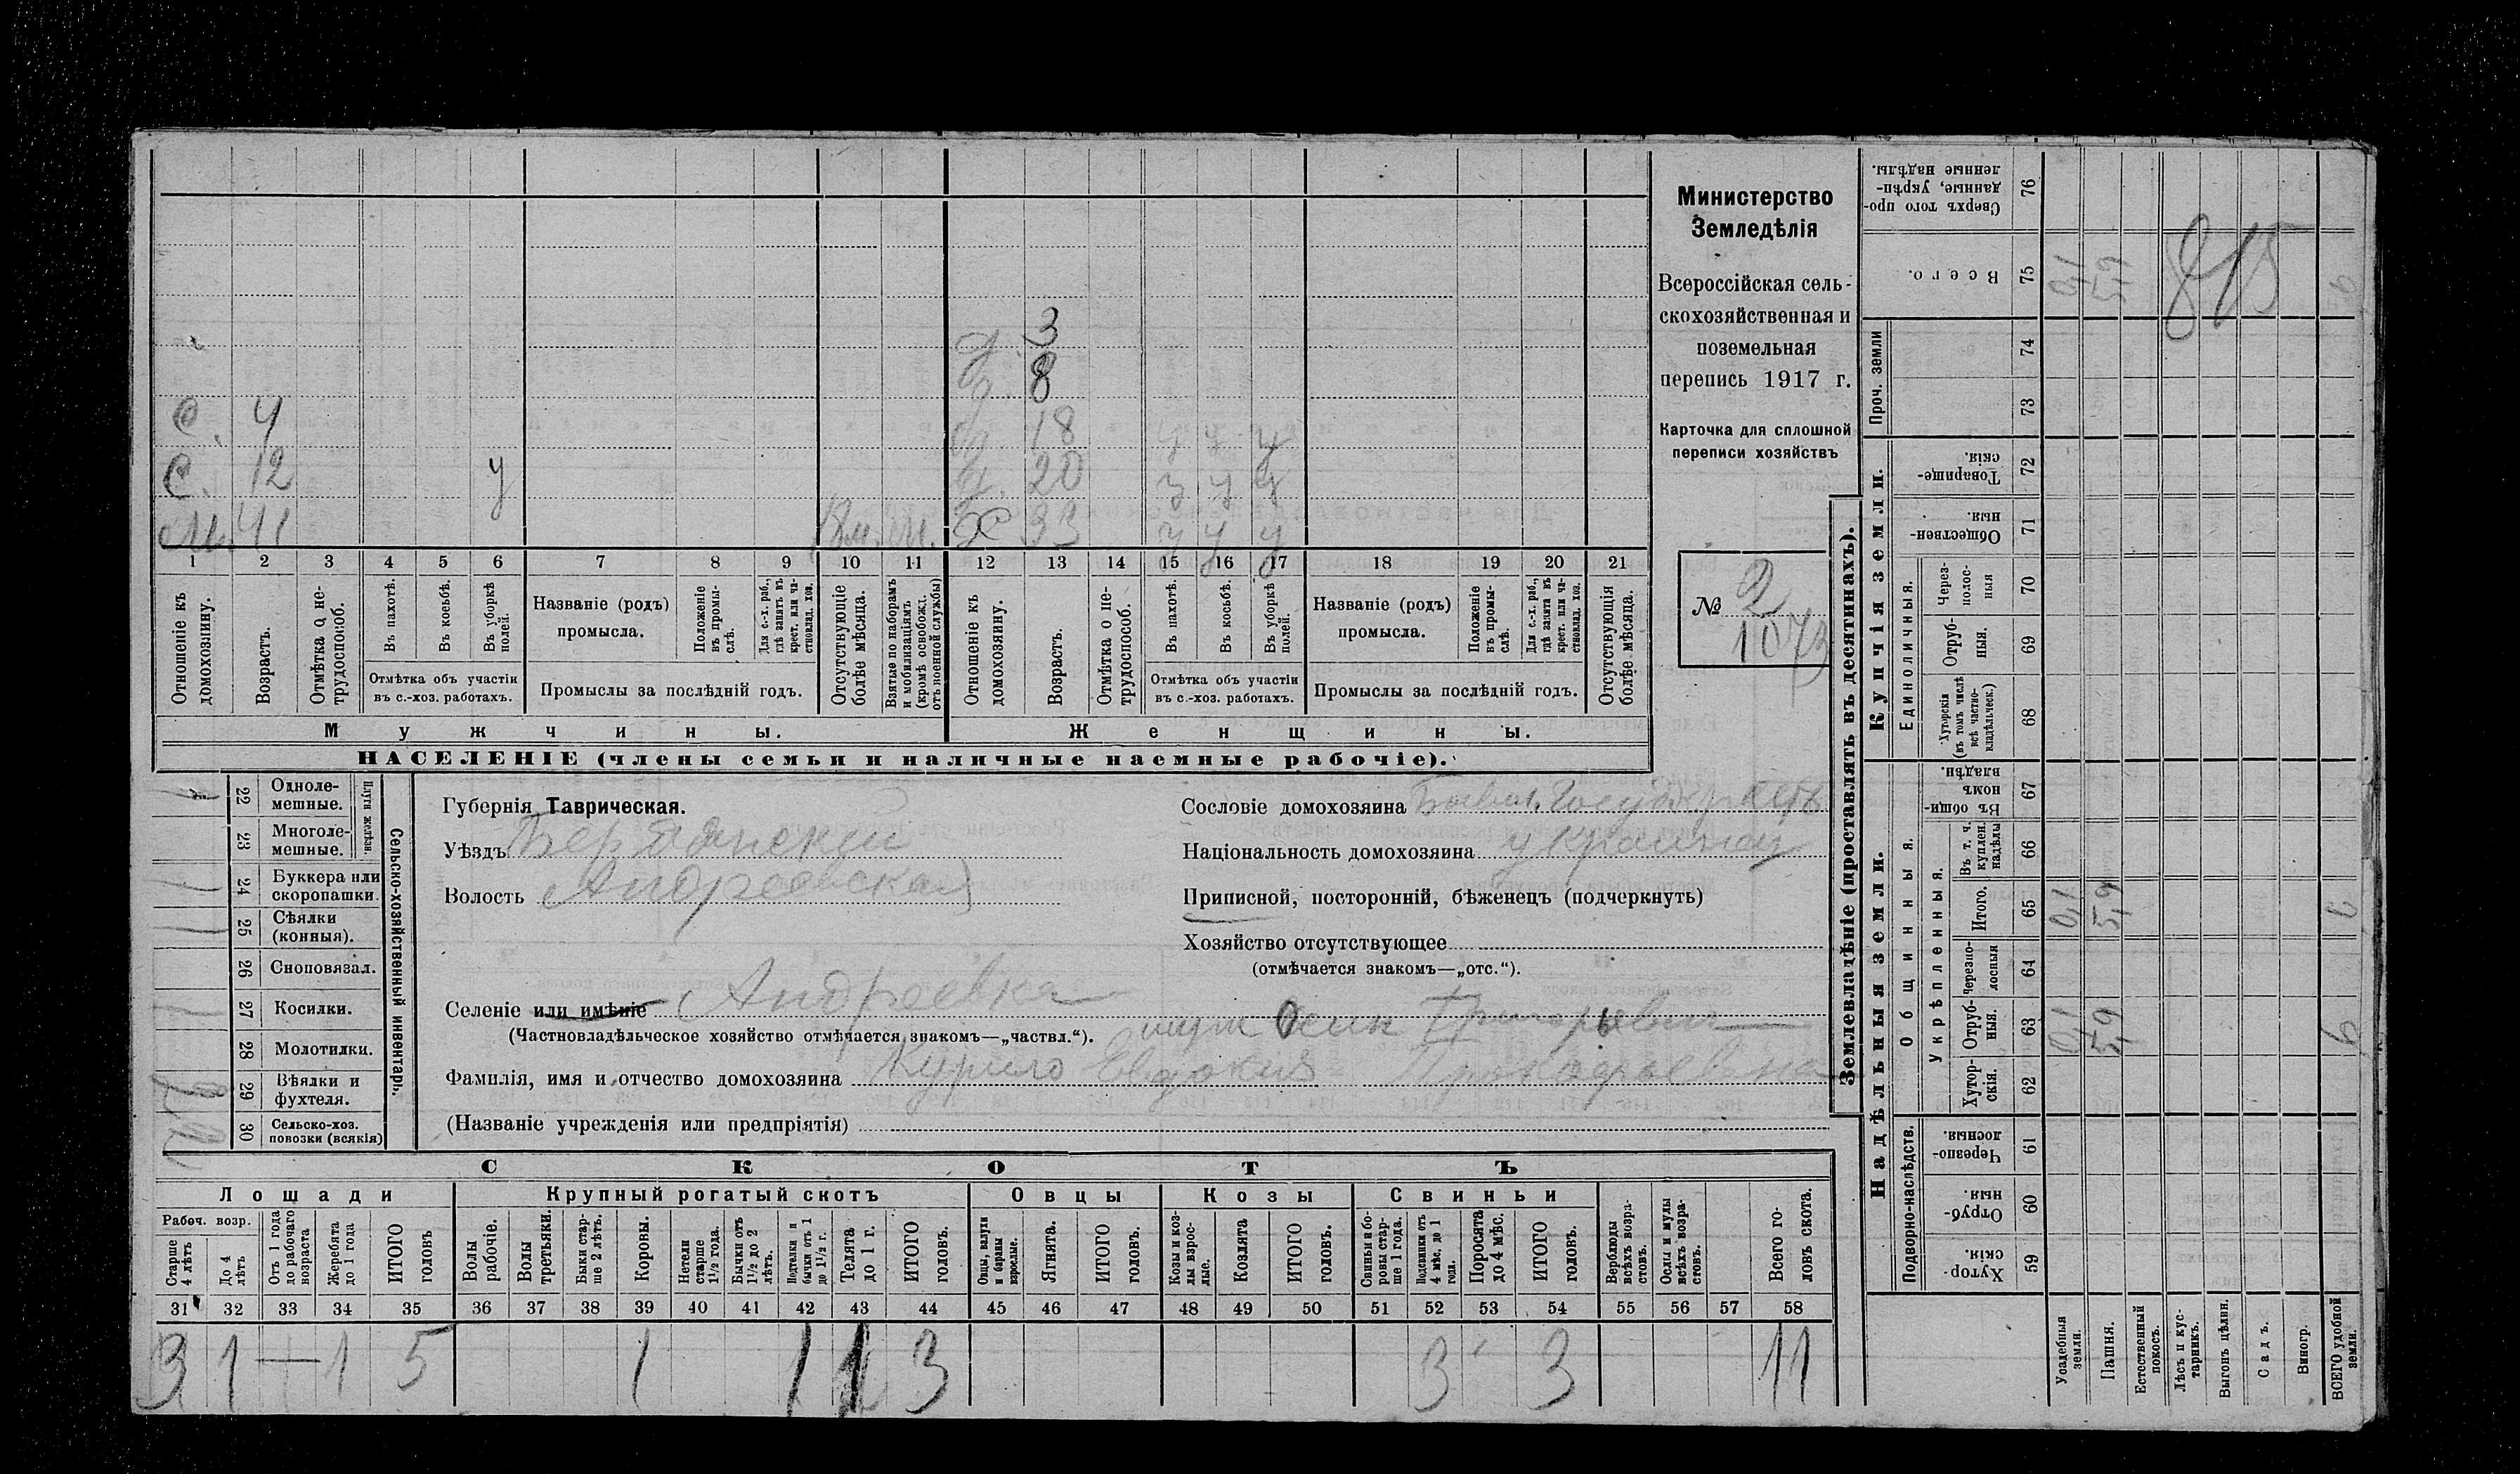 3
д. 8
С. 4 д. 18 у у у
С. 12 у д. 20 у у у
М. 41 Ж 33 у у у
1 2 3 4 5 6 7 8 9 10 11 12 13 14 15 16 17 18 19 20 21
Отношеніе къ домохозяину.
Возрастъ.
Отмѣтка о не-трудоспособ.
Въ пахотѣ.
Въ косьбѣ.
Въ уборкѣ полей.
Отмѣтка объ участіи
въ с.-хоз. работахъ.
Названіе (родъ)
промысла.
Положеніе въ промы-слѣ.
Для с.-х. раб., гдѣ занятъ въ крест. или ча-стновлад. хоз.
Промыслы за послѣдній годъ.
Отсутствующіе болѣе мѣсяца.
Взятые по наборамъ и мобилизаціямъ (кромѣ освобожд. отъ военной службы)
Отношеніе къ домохозяину.
Возрастъ.
Отмѣтка о не-трудоспособ.
Въ пахотѣ.
Въ косьбѣ.
Въ уборкѣ полей.
Отмѣтка объ участіи
въ с.-хоз. работахъ.
Названіе (родъ)
промысла.
Положеніе въ промы-слѣ.
Для с.-х. раб., гдѣ занята въ крест. или ча-стновлад. хоз.
Промыслы за послѣдній годъ.
Отсутствующія болѣе мѣсяца.
Мужчины. Женщины.
НАСЕЛЕНІЕ (члены семьи и наличные наемные рабочіе).
Министерство
Земледѣлія
Всероссійская сель-
скохозяйственная и
поземельная
перепись 1917 г.
Карточка для сплошной
переписи хозяйствъ
№ 2
1073
Сельско-хозяйственный инвентарь.
Плуги желѣзн.
22 Одноле-мешные.
23 Многоле-мешные.
24 Буккера или скоропашки.
25 Сѣялки (конныя).
26 Сноповязал.
27 Косилки.
28 Молотилки.
29 Вѣялки и фухтеля.
30 Сельско-хоз. повозки (всякія)
Губернія Таврическая.
Уѣздъ Бердянскій
Волость Андреевская
Селеніе или имѣніе Андреевка
(Частновладѣльческое хозяйство отмѣчается знакомъ—„частвл.“).
муж Осип Григорьевич
Фамилія, имя и отчество домохозяина Курило Евдокия Прокофьевна
(Названіе учрежденія или предпріятія)
Сословіе домохозяина
Національность домохозяина
Приписной, посторонній, бѣженецъ (подчеркнуть)
Хозяйство отсутствующее
(отмѣчается знакомъ—„отс.“).
СКОТЪ
Лошади Крупный рогатый скотъ Овцы Козы Свиньи
Рабоч. возр.
Старше 4 лѣтъ
До 4 лѣтъ
Отъ 1 года до рабочаго возраста
Жеребята до 1 года
ИТОГО головъ
Волы рабочіе.
Волы третьяки.
Быки стар-ше 2 лѣтъ.
Коровы.
Нетели старше 1½ года.
Бычки отъ 1½ до 2 лѣтъ.
Подтелки и бычки отъ 1 до 1½ г.
Телята до 1 г.
ИТОГО головъ.
Овцы, валухи и бараны взрослые.
Ягнята.
ИТОГО головъ.
Козы и коз-лы взрос-лые.
Козлята
ИТОГО головъ.
Свиньи и бо-ровы стар-ше 1 года.
Подсвинки отъ 4 мѣс. до 1 года.
Поросята до 4 мѣс.
ИТОГО головъ.
Верблюды всѣхъ возра-стовъ.
Ослы и мулы всѣхъ возра-стовъ.
Всего го-ловъ скота.
31 32 33 34 35 36 37 38 39 40 41 42 43 44 45 46 47 48 49 50 51 52 53 54 55 56 57 58
3 1 — 1 5 1 1 1 3 3 3 11
Землевладѣніе (проставлять въ десятинахъ).
Купчія земли.
Надѣльныя земли.
Сверхъ того про-данные, укрѣп-ленные надѣлы. 76
Всего. 75 0,1 5,9 6
815
Проч. земли 74
73
Товарище-скія. 72
Обществен-ныя. 71
Единоличныя.
Через-полос-ныя 70
Отруб-ныя. 69
Хуторскія (въ томъ числѣ всѣ частно-владѣльческ.) 68
Общинныя.
Въ общи-номъ владѣн. 67
Укрѣпленныя.
Въ т. ч. куплен. надѣлы 66
Итого. 65 0,1 5,9 6
Черезпо-лосныя 64
Отруб-ныя. 63 0,1 5,9 6
Хутор-скія. 62
Подворно-наслѣдств.
Черезпо-лосныя. 61
Отруб-ныя. 60
Хутор-скія. 59
Усадебныя земли.
Пашня.
Естественный покосъ.
Лѣсъ и кус-тарникъ.
Выгонъ цѣлин.
Садъ.
Виногр.
ВСЕГО удобной земли.